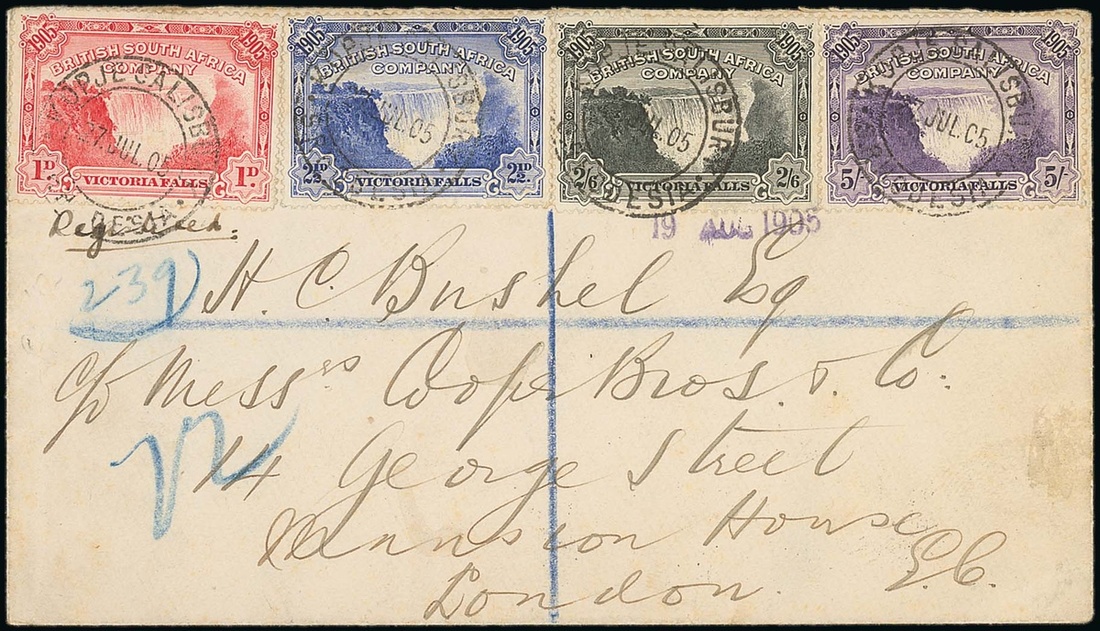 1905 1905 1905 1905 1905 1905 1905 1905
BRITISH SOUTH AFRICA COMPANY BRITISH SOUTH AFRICA COMPANY BRITISH SOUTH AFRICA COMPANY BRITISH SOUTH AFRICA COMPANY
KOPJE SALISB
JUL 05 JUL 05 JUL 05 7 JUL 05
1D 1D. 2½D 2½D 2/6 2/6 5/- 5/-
VICTORIA FALLS VICTORIA FALLS VICTORIA FALLS VICTORIA FALLS
DESIA
19 AUG 1905
239
H. C. Bushel Esq
c/o Messrs Cooper Bros. & Co.
14 George Street
Mansion House
London. E.C.